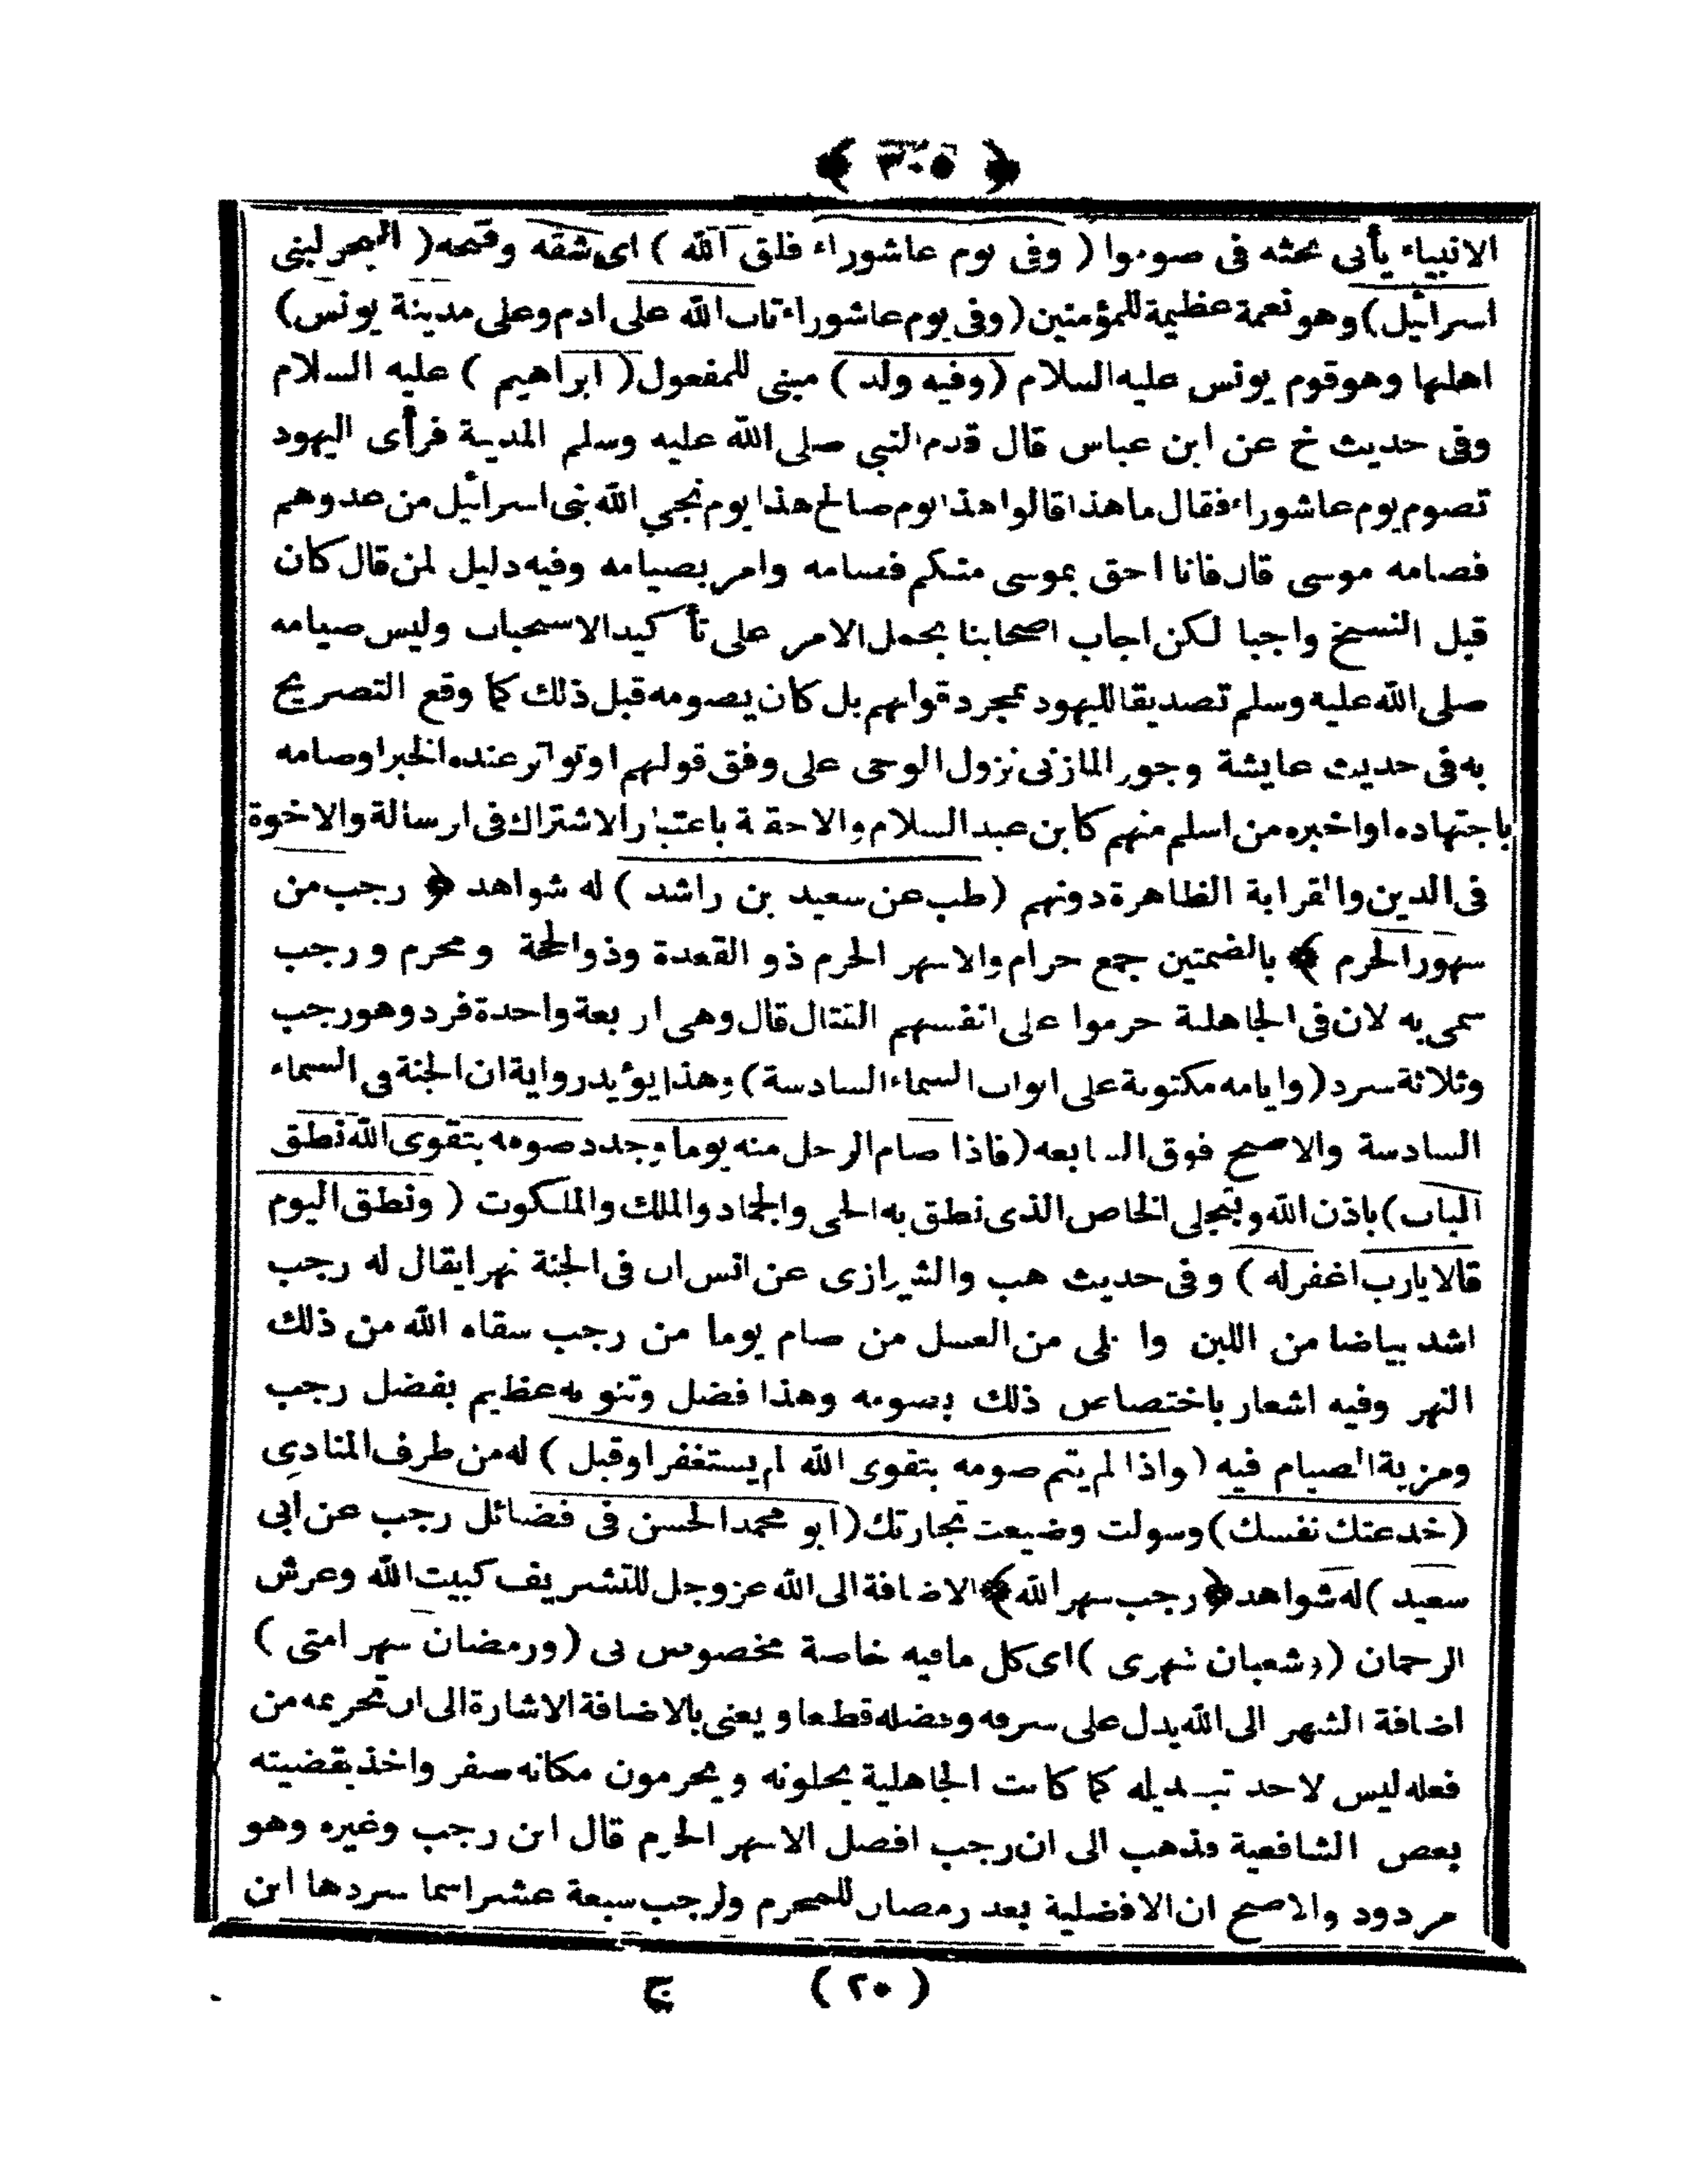 ﴿ ٣٠٥ ﴾
الانبياء يأتى بحثه فى صوموا ( وفى يوم عاشوراء فلق الله ) اى شقه وفتحه ( البحر لبنى
اسرائيل ) وهو نعمة عظيمة للمؤمنين ( وفى يوم عاشوراء تاب الله على ادم وعلى مدينة يونس )
اهلها وهو قوم يونس عليه السلام ( وفيه ولد ) مبنى للمفعول ( ابراهيم ) عليه السلام
وفى حديث خ عن ابن عباس قال قدم النبي صلى الله عليه وسلم المدينة فرأى اليهود
تصوم يوم عاشوراء فقال ما هذا قالوا هذا يوم صالح هذا يوم نجي الله بنى اسرائيل من عدوهم
فصامه موسى قال فانا احق بموسى منكم فصامه وامر بصيامه وفيه دليل لمن قال كان
قبل النسخ واجبا لكن اجاب اصحابنا بحمل الامر على تأكيد الاستحباب وليس صيامه
صلى الله عليه وسلم تصديقا لليهود بمجرد قولهم بل كان يصومه قبل ذلك كما وقع التصريح
به فى حديث عايشة وجوز المازنى نزول الوحى على وفق قولهم او تواتر عنده الخبر او صامه
باجتهاده او اخبره من اسلم منهم كابن عبد السلام والاحقية باعتبار الاشتراك فى الرسالة والاخوة
فى الدين والقرابة الظاهرة دونهم ( طب عن سعيد بن راشد ) له شواهد ﴿ رجب من
شهور الحرم ﴾ بالضمتين جمع حرام والاشهر الحرم ذو القعدة وذو الحجة ومحرم ورجب
سمى به لان فى الجاهلية حرموا على انفسهم القتال قال وهى اربعة واحدة فرد وهو رجب
وثلاثة سرد ( وايامه مكتوبة على ابواب السماء السادسة ) وهذا يؤيد رواية ان الجنة فى السماء
السادسة والاصح فوق السابعه ( فاذا صام الرجل منه يوما وجدد صومه بتقوى الله نطق
الباب ) باذن الله وبتجلى الخاص الذى نطق به الحى والجماد والملك والملكوت ( ونطق اليوم
قالا يارب اغفر له ) وفى حديث هب والشيرازى عن انس ان فى الجنة نهرا يقال له رجب
اشد بياضا من اللبن واحلى من العسل من صام يوما من رجب سقاه الله من ذلك
النهر وفيه اشعار باختصاص ذلك بصومه وهذا فضل وتنويه عظيم بفضل رجب
ومزية الصيام فيه ( واذا لم يتم صومه بتقوى الله لم يستغفرا وقيل ) له من طرف المنادى
( خدعتك نفسك ) وسولت وضيعت تجارتك ( ابو محمد الحسن فى فضائل رجب عن ابى
سعيد ) له شواهد ﴿ رجب شهر الله ﴾ الاضافة الى الله عز وجل للتشريف كبيت الله وعرش
الرحمان ( وشعبان شهرى ) اى كل ما فيه خاصة مخصوص بى ( ورمضان شهر امتى )
اضافة الشهر الى الله يدل على شرفه وفضله قطعا ويعنى بالاضافة الاشارة الى ان تحريمه من
فعله ليس لاحد تبديله كما كانت الجاهلية يحلونه ويحرمون مكانه صفر واخذ بقضيته
بعض الشافعية فذهب الى ان رجب افضل الاشهر الحرم قال ابن رجب وغيره وهو
مردود والاصح ان الافضلية بعد رمضان للمحرم ولرجب سبعة عشر اسما سردها ابن
( ٢٠ ) ج